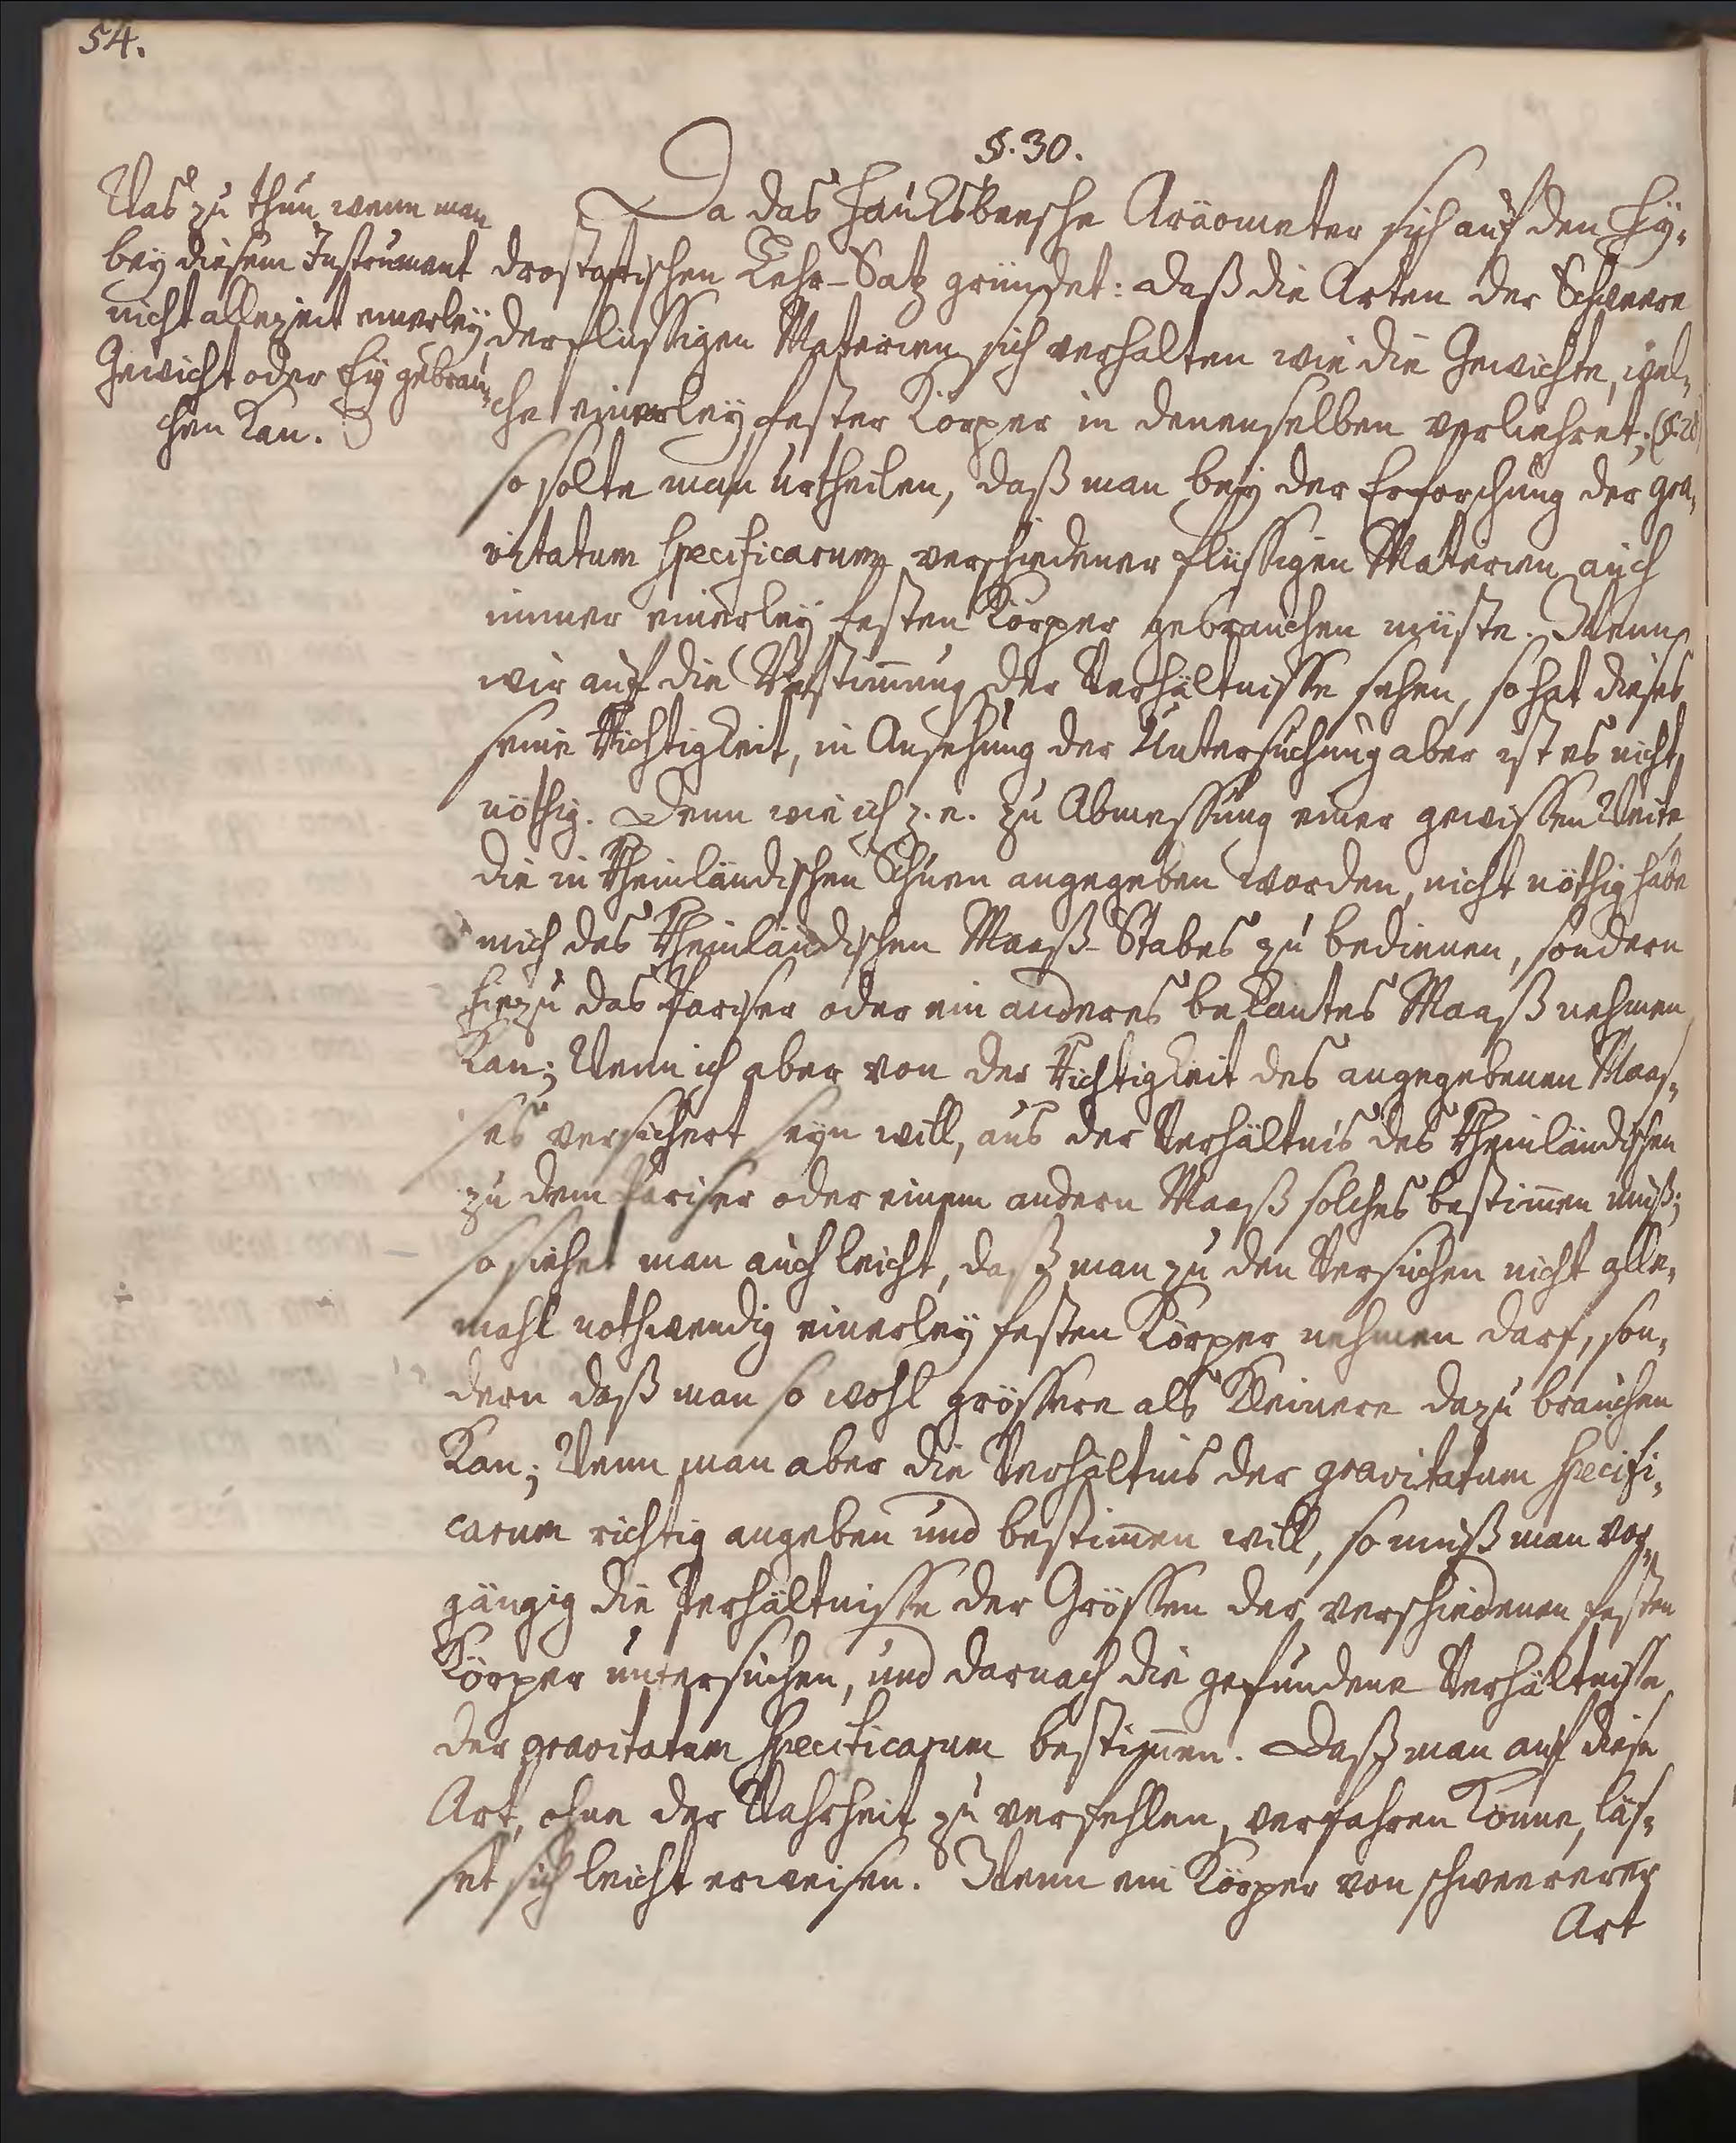 54.
§. 30.
Was zu thun, wenn man
bey diesem Instrument
nicht allezeit einerley
Gewicht oder Ey gebrau-
chen kan.
Da das Hauksbeesche Aräometer sich auf den Hy-
drostatischen Lehr-Satz gründet: daß die Arten der Schweere
der flüssigen Materien sich verhalten wie die Gewichte, wel-
che einerley fester Körper in denenselben verliehret; (§. 28)
so solte man urtheilen, daß man bey der Erforschung der gra-
vitatum specificarum verschiedener flüssigen Materien auch
immer einerley festen Körper gebrauchen müste. Wenn
wir auf die Bestim̄ung der Verhältnisse sehen, so hat dieses
seine Richtigkeit, in Ansehung der Untersuchung aber ist es nicht
nöthig. Denn wie ich z. e. zu Abmessung einer gewissen Weite
die in Rheinländischen Schuen angegeben worden, nicht nöthig habe
mich des Rheinländischen Maaß-Stabes zu bedienen, sondern
hiezu das Pariser oder ein anderes bekantes Maaß nehmen
kan; Wenn ich aber von der Richtigkeit des angegebenen Maas-
ses versichert seyn will, aus der Verhältnis des Rheinländischen
zu dem Pariser oder einem andern Maaß solches bestim̄en muß;
so siehet man auch leicht, daß man zu den Versuchen nicht alle-
mahl nothwendig einerley festen Körper nehmen darf, son-
dern daß man so wohl grössere als kleinere dazu brauchen
kan; Wenn man aber die Verhältnis der gravitatum specifi-
carum richtig angeben und bestim̄en will, so muß man vor-
gängig die Verhältnisse der Grössen der verschiedenen festen
Körper untersuchen, und darnach die gefundene Verhältnisse
der gravitatum specificarum bestim̄en. Daß man auf diese
Art, ohne der Wahrheit zu verfehlen, verfahren könne, läs-
set sich leicht erweisen. Wenn ein Körper von schweererer
Art